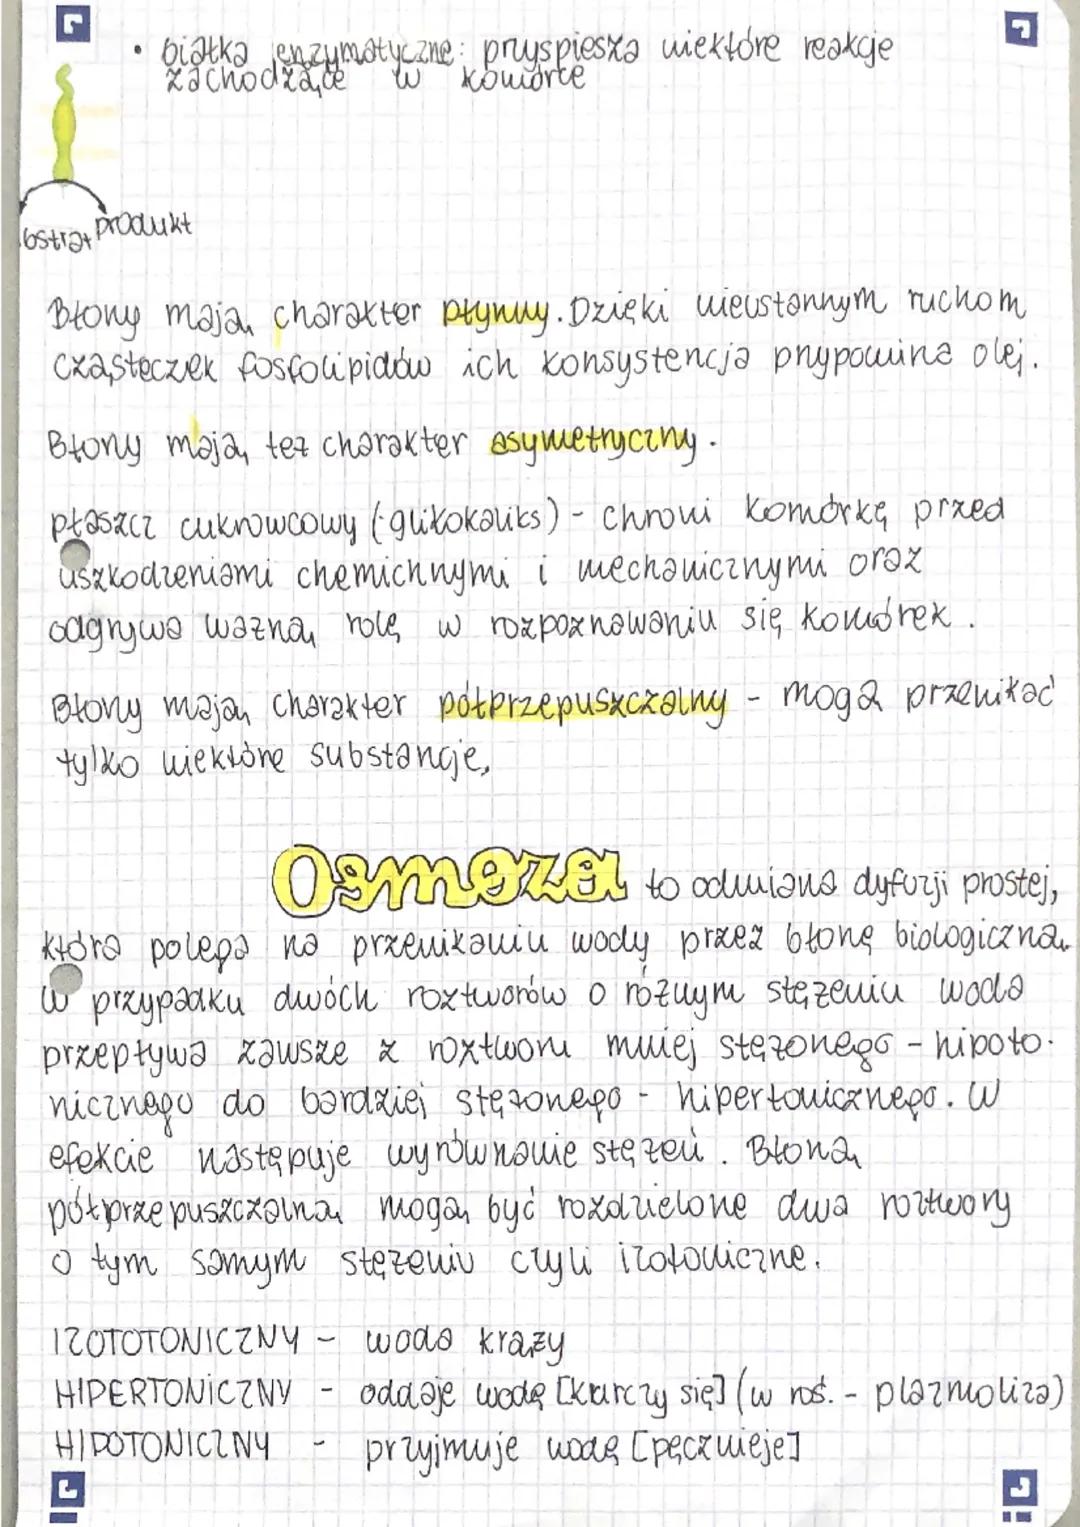 • białka enzymatyczne: pryspiesza niektóre reakcje
zachodzące w komórce
produkt
Błony mają charakter płynny. Dzięki nieustannym ruchom
cząsteczek fosfolipidów ich konsystencja pnypomina olej.
Błony mają też charakter asymetryczny.
płaszcz cukrowcowy (-glikokaliks) - chroni komórkę przed
uszkodzeniami chemicznymi i mechanicznymi oraz
odgrywa ważną rolę w rozpoznawaniu się komórek.
Błony mają charakter półprzepuszczalny - mogą przenikać
tylko niektóre substancje,
Osmoza to odmiana dyfuzji prostej,
która polega na przenikaniu wody przez błonę biologiczną.
W przypadku dwóch roztworów o różnym stężeniu woda
przepływa zawsze z roztworu mniej stężonego - hipoto-
nicznego do bardziej stężonego - hipertonicznego. W
efekcie następuje wyrównanie stężeń. Błoną
półprzepuszczalną mogą być rozdzielone dwa roztwory
o tym samym stężeniu czyli izotoniczne.
IZOTOTONICZNY - woda krąży
HIPERTONICZNY - oddaje wodę [kurczy się] (w roś. - plazmoliza)
HIPOTONICZNY - przyjmuje wodę [pęcznieje]